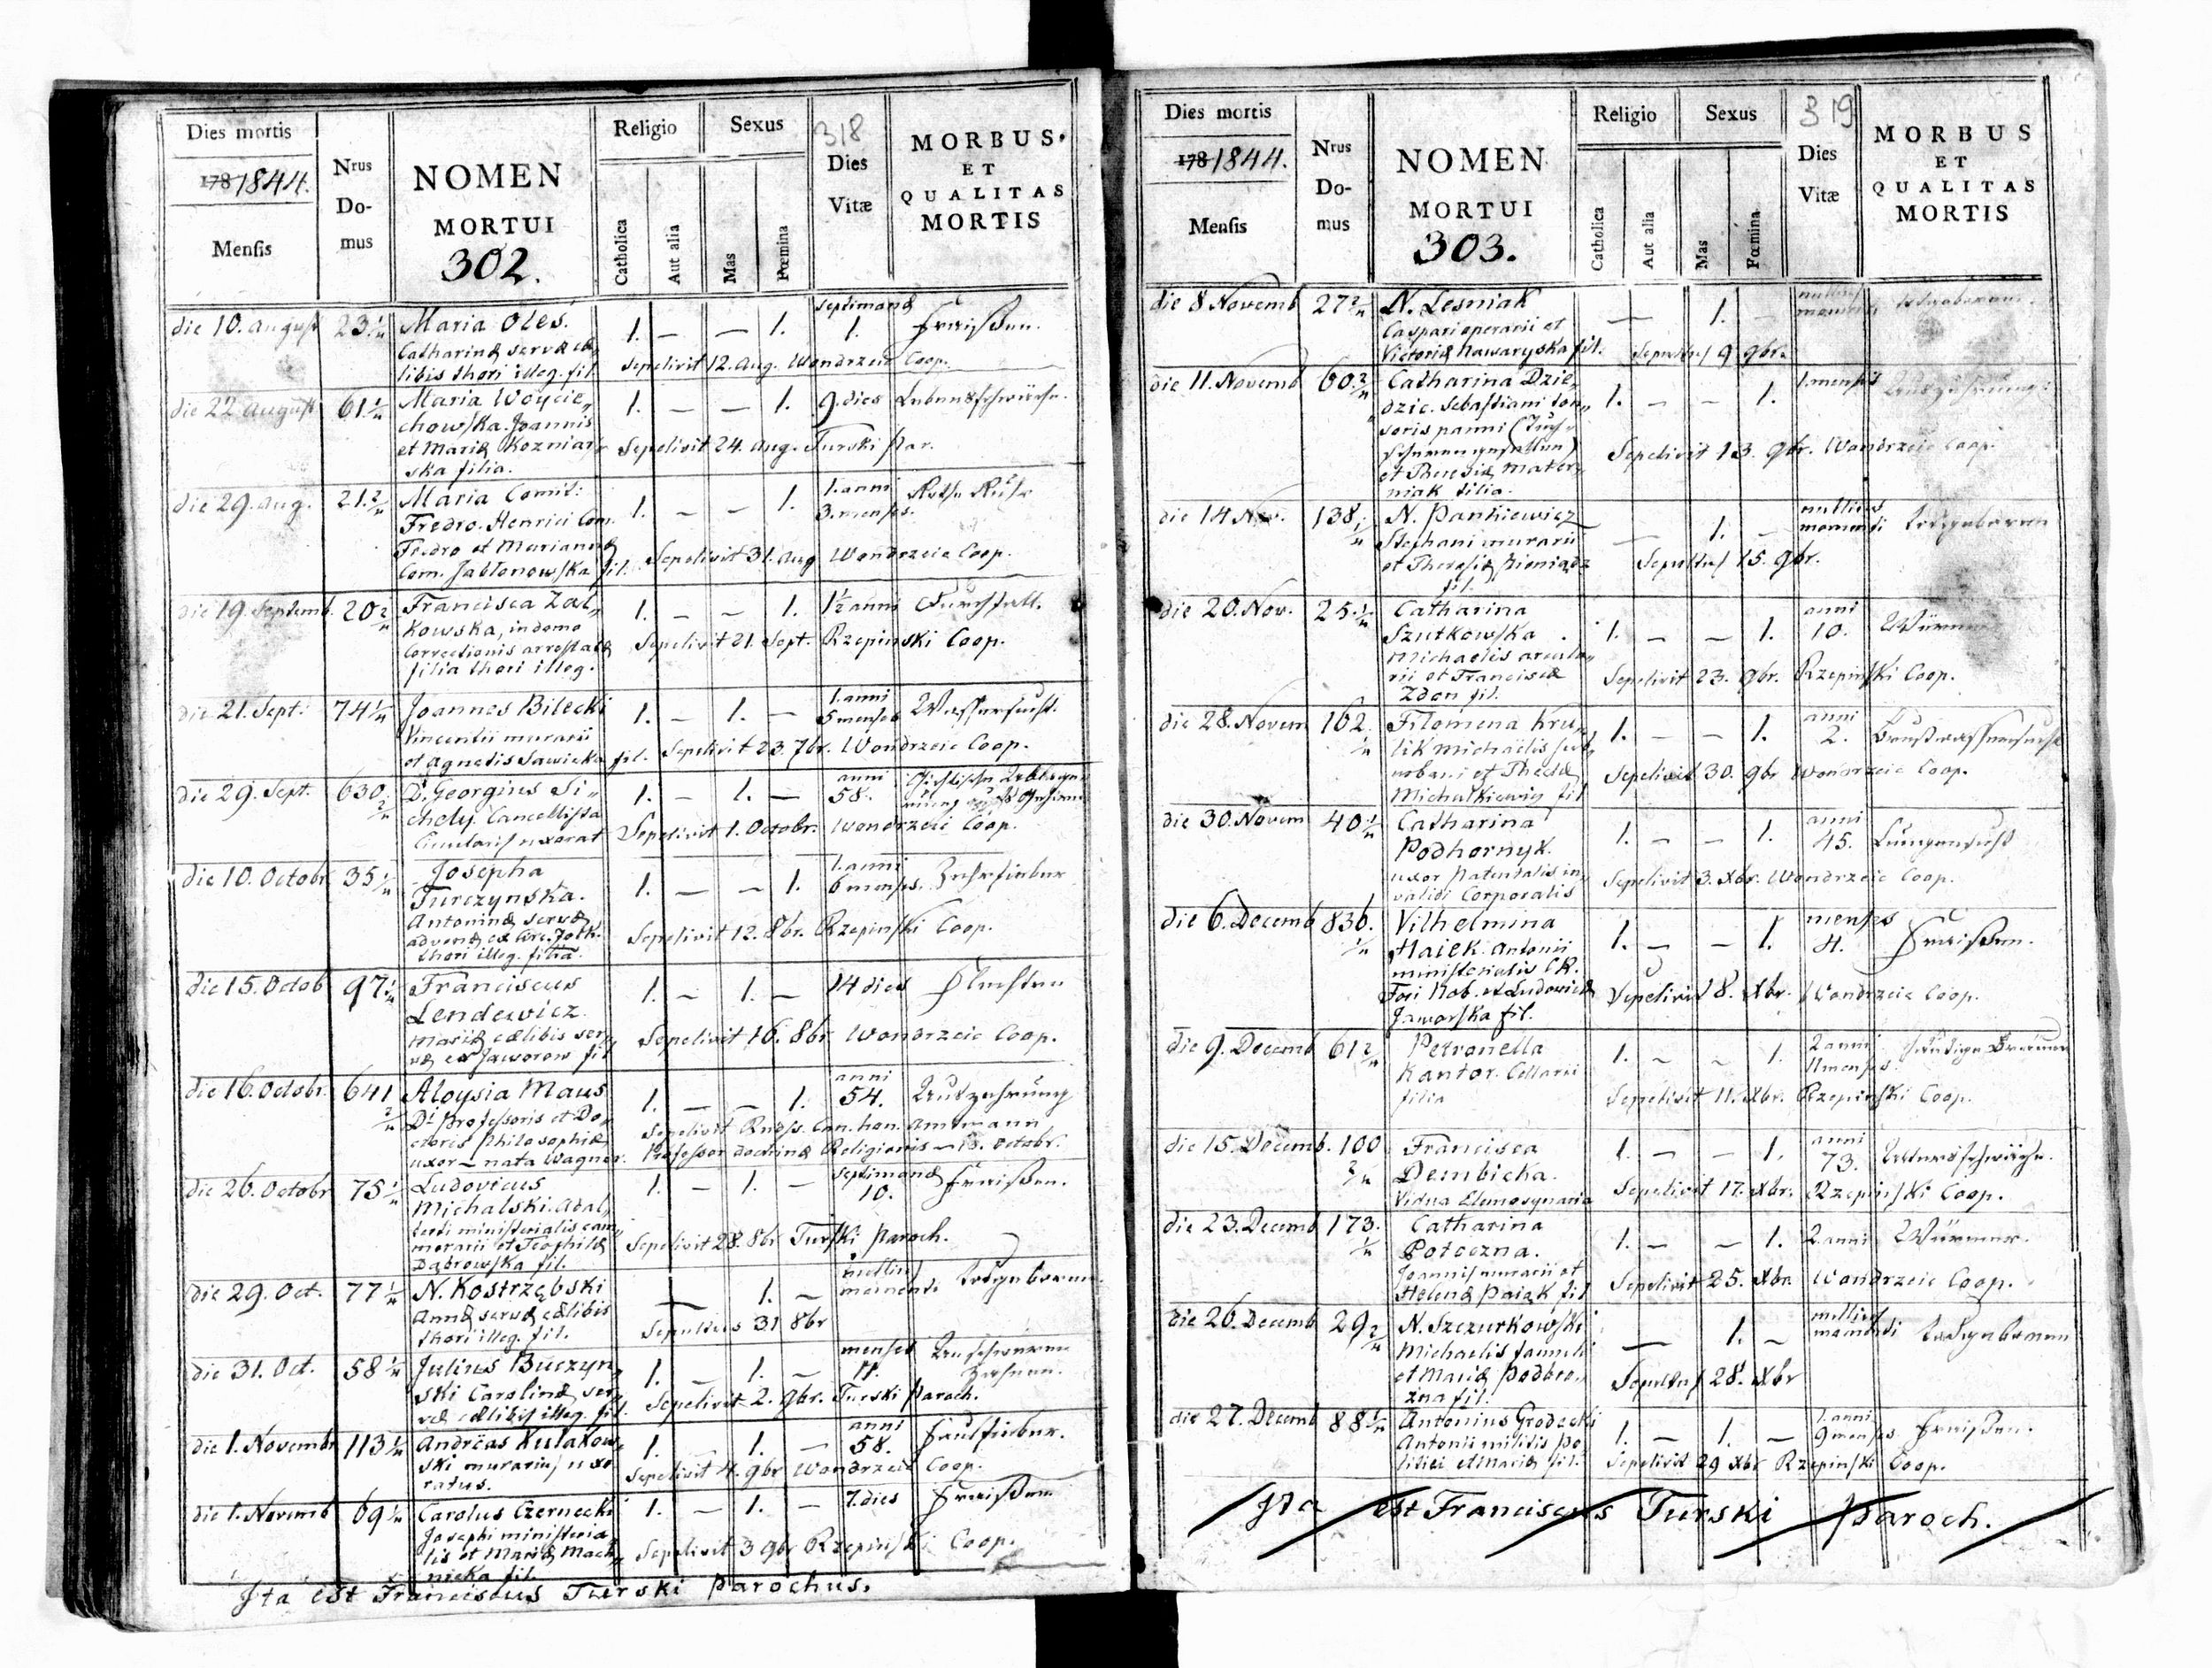 Dies mortis
1781844.
Mensis
Nrus
Do-
mus
NOMEN
MORTUI
302.
Religio
Catholica
Aut alia
Sexus
Mas
Fœmina
318
Dies
Vitæ
MORBUS
ET
QUALITAS
MORTIS
die 10. August 23 1/4 Maria Oleś. 1. — — 1. septimanæ 1. Fraißen.
Catharinæ servæ cæ,,
libis thori illeg. fil.
Sepelivit 12. Aug. Wondrzeic Coop.
die 22 August 61 1/4 Maria Woycie,, 1. — — 1. 9. dies Lebensschwäche.
chowska. Joannis
et Mariæ Kozniar,,
ska filia.
Sepelivit 24. Aug. Turski Par.
die 29. Aug. 21 2/4 Maria Comit: 1. — — 1. 1. anni 3. menses. Rothe Ruhr
Fredro. Henrici Com.
Fredro et Mariannæ
Com. Jabłonowska fil.
Sepelivit 31. Aug Wondrzeic Coop.
die 19. Septemb. 20 2/4 Francisca Zal,, 1. — — 1. 1½ anni Durchfall.
kowska, in domo
correctionis arrestatæ
filia thori illeg.
Sepelivit 21. Sept. Rzepinski Coop.
die 21. Sept: 74 1/4 Joannes Bilecki 1. — 1. — 1. anni 5 menses Wassersucht.
Vincentii murarii
et Agnetis Sawicka fil.
Sepelivit 23. 7br. Wondrzeic Coop.
die 29. Sept. 630. 2/4 D. Georgius Si,, 1. — 1. — anni 58.
chely. Cancellista
uxorat
Sepelivit 1. Octobr. Wondrzeic Coop.
die 10. Octobr 35 1/4 Josepha 1. — — 1. 1. anni 6 menses. Zehrfieber
Turczynska.
Antoninæ servæ
thori illeg. filia.
Sepelivit 12. 8br. Rzepinski Coop.
die 15. Octob 97 1/4 Franciscus 1. — 1. — 14 dies
Lendewicz
Mariæ cælibis ser,,
væ ex Jaworow fil
Sepelivit 16. 8br Wondrzeic Coop.
die 16. Octobr. 641 2/4 Aloysia Maus 1. — — 1. anni 54. Auszehrung
Di Professoris et Do,,
ctoris Philosophiæ
uxor — nata Wagner.
Sepelivit Can. hon. Amtmann
Professor doctrinæ Religionis — 18. Octobr.
die 26. Octobr 75 1/4 Ludovicus 1. — 1. — septimanæ 10. Fraißen.
Michalski. Adal,,
berti ministerialis cam,,
merarii et Teophilæ
Dąbrowska fil.
Sepelivit 28. 8br Turski Paroch.
die 29. Oct. 77 1/4 N. Kostrzębski — 1. — nullius momenti Todtgeboren.
Annæ servæ cælibis
thori illeg. fil.
Sepultus 31 8br
die 31. Oct. 58 1/4 Julius Buczyn,, 1. — 1. — menses
ski Carolinæ ser,,
væ cælibis illeg. fil.
Sepelivit 2. 9br. Turski Paroch.
die 1. Novembr 113 1/4 Andreas Kulakow,, 1. — 1. — anni 58. Faulfieber.
ski murarius uxo
ratus.
Sepelivit 4. 9br Wondrzeic Coop.
die 1. Novemb 69 1/4 Carolus Czernecki 1. — 1. — 7. dies Fraißen
Josephi ministeria
lis et Mariæ Mach,,
nicka fil.
Sepelivit 3 9br Rzepinski Coop.
Ita est Franciscus Turski Parochus.
Dies mortis
1781844.
Mensis
Nrus
Do-
mus
NOMEN
MORTUI
303.
Religio
Catholica
Aut alia
Sexus
Mas
Fœmina
319
Dies
Vitæ
MORBUS
ET
QUALITAS
MORTIS
die 8 Novemb 27 2/4 N. Lesniak — 1. — nullius momenti Todtgeboren.
Caspari operarii et
Victoriæ Nawaryska fil.
Sepultus 9 9br.
die 11. Novemb 60 2/4 Catharina Dzie,, 1. — — 1. 1. mensis Auszehrung.
dzic. Sebastiani ton,,
soris panni (Tuch
et Theresiæ Mater,,
niak filia.
Sepelivit 13. 9br. Wondrzeic Coop.
die 14 Nov. 138 1/4 N. Pankiewicz — 1. — nullius momenti Todtgeboren
Stephani murarii
et Theresiæ Pieniądz
fil.
Sepultus 15. 9br.
die 20. Nov. 25 1/4 Catharina 1. — — 1. anni 10. Würmer
Szutkowska
Michaelis arcula,,
rii et Franciscæ
Zdon fil.
Sepelivit 23. 9br. Rzepinski Coop.
die 28. Novem 162 Filomena Kru,, 1. — — 1. anni 2. Brustwassersucht
lik Michaelis sub,,
urbani et Theclæ
Michalkiewicz fil
Sepelivit 30. 9br Wondrzeic Coop.
die 30. Novem 40 1/4 Catharina 1. — — 1. anni 45. Lungensucht
Podhornyk.
uxor Patentalis in,,
validi Corporalis
Sepelivit 3. Xbr. Wondrzeic Coop.
die 6. Decemb 836. 1/4 Vilhelmina 1. — — 1. menses 4. Fraißen.
Haiek. Antonii
ministerialis CR.
Fori Nob. et Ludovicæ
Jaworska fil.
Sepelivit 8. Xbr. Wondrzeic Coop.
die 9. Decemb 61 2/4 Petronella 1. — — 1. 2 anni 11 menses. häutige Bräune
Kantor. Cellarii
filia
Sepelivit 11. Xbr. Rzepinski Coop.
die 15. Decemb. 100 2/4 Francisca 1. — — 1. anni 73. Altersschwäche.
Dembicka.
Vidua Elemosynaria
Sepelivit 17. Xbr. Rzepinski Coop.
die 23. Decemb 173. 1/4 Catharina 1. — — 1. 2 anni Würmer.
Potoczna.
Joannis murarii et
Helenæ Paiąk fil
Sepelivit 25. Xbr. Wondrzeic Coop.
die 26. Decemb 29 2/4 N. Szczurkowski — 1. — nullius momenti Todtgeboren
Michaelis famuli
et Mariæ Podbro,,
zna fil.
Sepultus 28. Xbr
die 27. Decemb 88 1/4 Antonius Grodecki 1. — 1. — 1. anni 9 menses Fraißen.
Antonii militis po,,
litici et Mariæ fil.
Sepelivit 29 Xbr Rzepinski Coop.
Ita est Franciscus Turski Paroch.